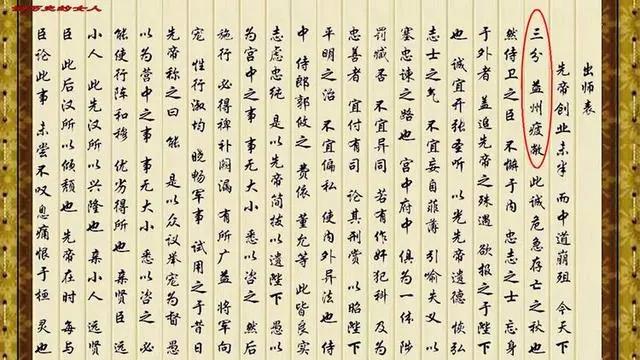 历史的女人
出师表
先帝创业未半 而中道崩殂 今天下
三分 益州疲敝 此诚危急存亡之秋也
然侍卫之臣 不懈于内 忠志之士 忘身
于外者 盖追先帝之殊遇 欲报之于陛下
也 诚宜开张圣听 以光先帝遗德 恢弘
志士之气 不宜妄自菲薄 引喻失义 以
塞忠谏之路也 宫中府中 俱为一体 陟
罚臧否 不宜异同 若有作奸犯科 及为
忠善者 宜付有司 论其刑赏 以昭陛下
平明之治 不宜偏私 使内外异法也 侍
中 侍郎郭攸之 费依 董允等 此皆良实
志虑忠纯 是以先帝简拔以遗陛下 愚以
为宫中之事 事无大小 悉以咨之 然后
施行 必得裨补阙漏 有所广益 将军向
宠 性行淑均 晓畅军事 试用之于昔日
先帝称之曰 能 是以众议举宠为督 愚
以为营中之事 事无大小 悉以咨之 必
能使行阵和穆 优劣得所也 亲贤臣 远
小人 此先汉所以兴隆也 亲小人 远贤
臣 此后汉所以倾颓也 先帝在时 每与
臣论此事 未尝不叹息痛恨于桓 灵也